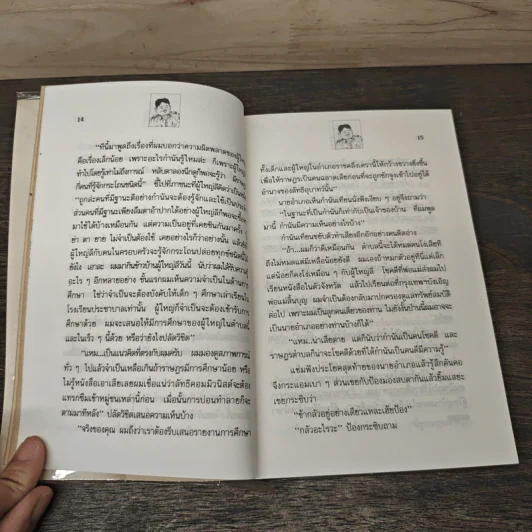 14
"ทีนี้มาพูดถึงเรื่องที่ผมบอกว่าความผิดพลาดของผู้ใหญ่
คือเรื่องเล็กน้อย เพราะอะไรกำนันรู้ไหมล่ะ ก็เพราะผู้ใหญ่
ทำไปโดยรู้เท่าไม่ถึงการณ์ หลับตาลองนึกดูก็พอจะรู้ว่า
ก็คนที่รู้จักกระโถนชนิดนี้" ชี้ไปที่ภาชนะที่ผู้ใหญ่ลีคิดว่าเป็น
"ถูกล่ะคนที่มีฐานะดีอย่างกำนันจะต้องรู้จักและใช้เป็น
ส่วนคนที่มีฐานะเพียงลืมตาอ้าปากได้อย่างผู้ใหญ่ลีก็คง
มาใช้ได้บ้างเหมือนกัน แต่ความเป็นอยู่ที่เคยชินกันมาครั้ง
ย่า ตา ยาย ไม่จำเป็นต้องใช้ เคยอย่างไรก็ว่าอย่างนั้น แล้ว
ผู้ใหญ่ลีกับคนในครอบครัวจะรู้จักกระโถนปล่อยทุกข์ชนิดนี้
ยังไง เอาละ ผมมากินข้าวบ้านผู้ใหญ่ลีวันนี้ นับว่าผมได้รับความรู้
อะไร ๆ อีกหลายอย่าง ขั้นแรกผมเห็นความจำเป็นในด้านการ
ศึกษา ใช่ว่าจำเป็นจะต้องบังคับให้เด็ก ๆ ศึกษาเล่าเรียนใน
โรงเรียนประชาบาลเท่านั้น ผู้ใหญ่ก็จำเป็นจะต้องเข้ารับการ
ศึกษาด้วย ผมจะเสนอให้มีการศึกษาของผู้ใหญ่ในตำบลนี้
และในเร็ว ๆ นี้ด้วย หรือว่ายังไงปลัดวิชิต"
"แหม...เป็นแนวคิดที่ตรงกับผมครับ ผมมองดูสภาพการณ์
ทั่ว ๆ ไปแล้วจำเป็นเหลือเกินถ้าราษฎรมีการศึกษาน้อย หรือ
ไม่รู้หนังสือเอาเสียเลยผมเชื่อแน่ว่าลัทธิคอมมิวนิสต์จะต้อง
แทรกซึมเข้าหมู่ชนเหล่านี้ก่อน เมื่อนั้นการบ่อนทำลายก็จะ
ตามมาทีหลัง" ปลัดวิชิตเสนอความเห็นบ้าง
"จริงของคุณ ผมถึงว่าเราต้องรีบเสนอรายงานการศึกษา
15
ทั้งเด็กและผู้ใหญ่ในอำเภอราชคลังเศรานี้ให้กว้างขวางยิ่งขึ้น
เพื่อให้ราษฎรเป็นคนฉลาดเสียก่อนที่จะถูกชักจูงเข้าไปอยู่ใต้
อำนาจของลัทธิอุบาทว์นั้น"
นายอำเภอเห็นกำนันเทียนนั่งฟังเงียบ ๆ อยู่จึงถามว่า
"ในฐานะที่เป็นกำนันก็เท่ากับเป็นเจ้าของบ้าน ที่ผมพูด
มานี้ กำนันมีความเห็นอย่างไรบ้าง"
กำนันเทียนขยับตัวทำเสียงอึกอักอย่างคนติดอ่าง
"ถ้า...ผมก็ว่าดีเหมือนกัน ตำบลนี้จะได้หมดคนโง่เสียที
ถึงไม่หมดแต่มีเหลือน้อยยังดี ผมเองถ้าหมกตัวอยู่ที่นี่แต่เล็ก
แต่น้อยก็คงโง่เหมือน ๆ กับผู้ใหญ่ลี โชคดีที่พ่อแม่ส่งผมไป
เรียนหนังสือในตัวจังหวัด แล้วก็ไปเรียนต่อที่กรุงเทพฯบังเอิญ
พ่อแม่สิ้นบุญ ผมจำเป็นต้องกลับมาปกครองดูแลทรัพย์สมบัติ
ต่อไป เพราะผมเป็นลูกคนเดียวของท่าน ไม่ยังงั้นป่านนี้ผมอาจจะ
เป็นนายอำเภออย่างท่านก็ได้"
"แหม..น่าเสียดาย แต่ก็นับว่ากำนันเป็นคนโชคดี และ
ราษฎรตำบลก็น่าจะโชคดีด้วยที่ได้กำนันเป็นคนดีมีความรู้"
แช่มฟังประโยคสุดท้ายของนายอำเภอแล้วรู้สึกคันคอ
จึงกระแอมเบา ๆ ส่วนเชยกับป้องมองสบตากันแล้วยิ้มและ
เชยกระซิบว่า
"ข้ากลัวอยู่อย่างเดียวแหละเฮ้ยป้อง"
"กลัวอะไรวะ" ป้องกระซิบถาม